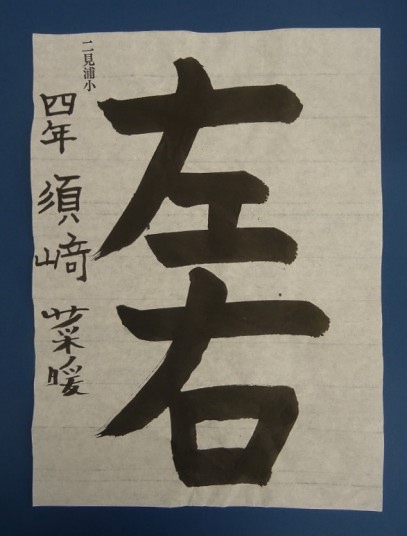 左右
二見浦小
四年 須﨑 菜暖